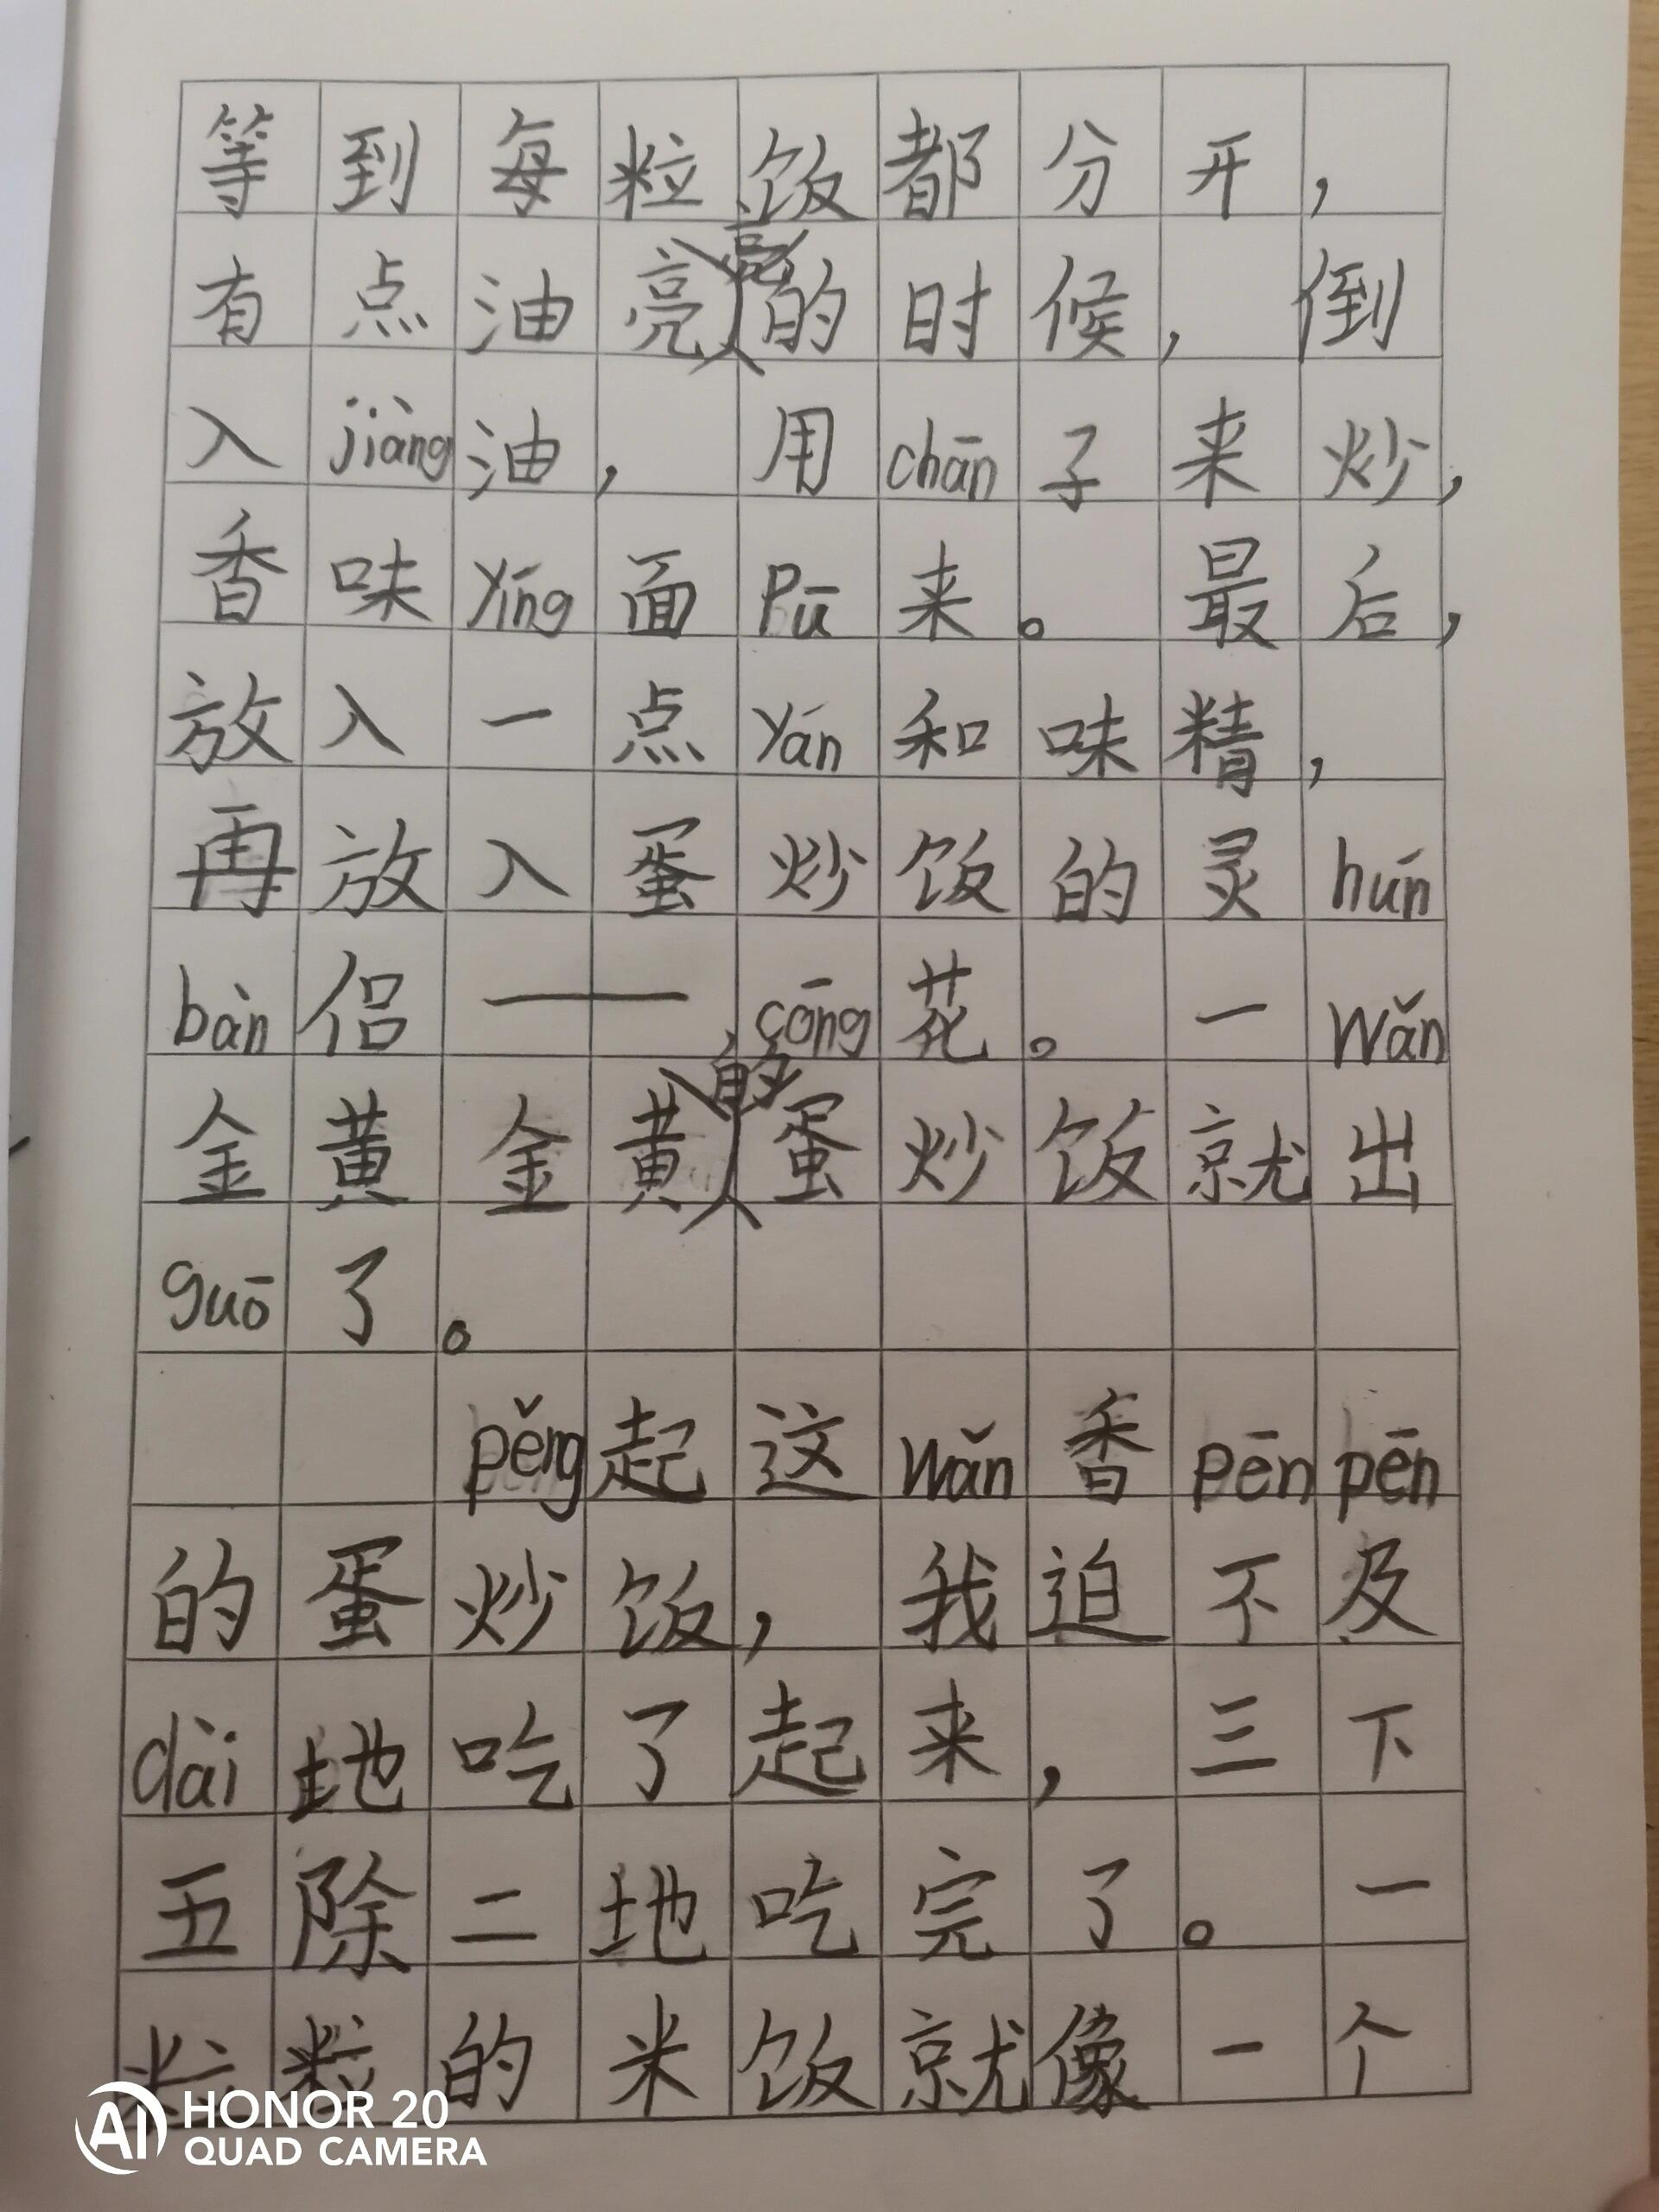 等到每粒饭都分开，
有点油亮亮的时候，倒
入jiàng油，用chǎn子来炒，
香味yíng面pū来。最后，
放入一点yán和味精，
再放入蛋炒饭的灵hún
bàn侣——cōng花。一wǎn
金黄金黄的蛋炒饭就出
guō了。
pěng起这wǎn香pēnpēn
的蛋炒饭，我迫不及
dài地吃了起来，三下
五除二地吃完了。一
粒粒的米饭就像一个
HONOR 20
QUAD CAMERA